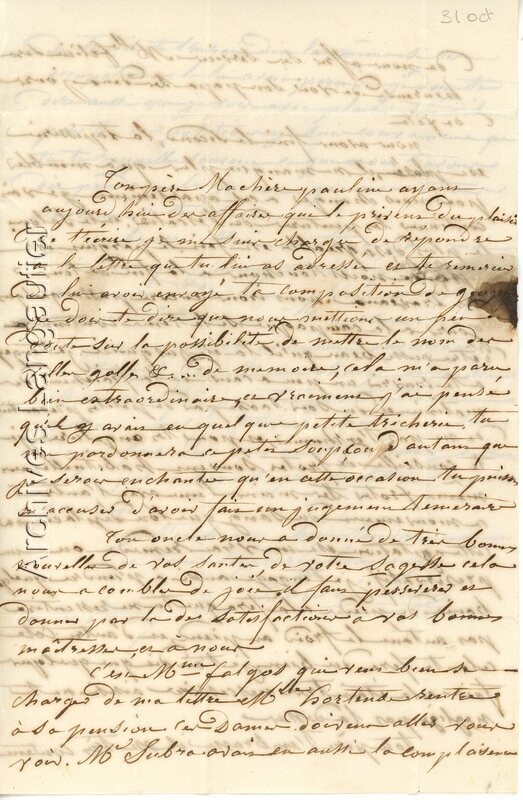 31 oct
Ton père Ma chère pauline ayant
aujourd'hui des affaire qui le privent du plaisir
t'écrire je me suis chargé de répondre
la lettre que tu lui as adressée et te remercie
lui avoir envoyé ta composition de
doit te dire que nous mettions un peu
doute sur la possibilité de mettre le nom des
villes golfe &... de memoire, cela m'a paru
bien extraordinaire, et vraiment j'ai pensé
qu'il y avait eu quelque petite tricherie, tu
me pardonnera ce petit soupçon d'autant que
je serois enchanté qu'en cette occasion tu puisse
m'accuser d'avoir fait un jugement temeraire
Ton oncle nous a donné de très bonnes
nouvelles de vos santés, de votre sagesse cela
nous a comblé de joie il faut perseverer et
donner par la des satisfactions à vos bonnes
maîtresses, et à nous
c'est Mme falgos qui veut bien se
charger de ma lettre Mlle hortense rentre
à sa pension ces Dames doivent aller vous
voir. Mr Subra avait eu aussi la complaisance
Archives Langautier